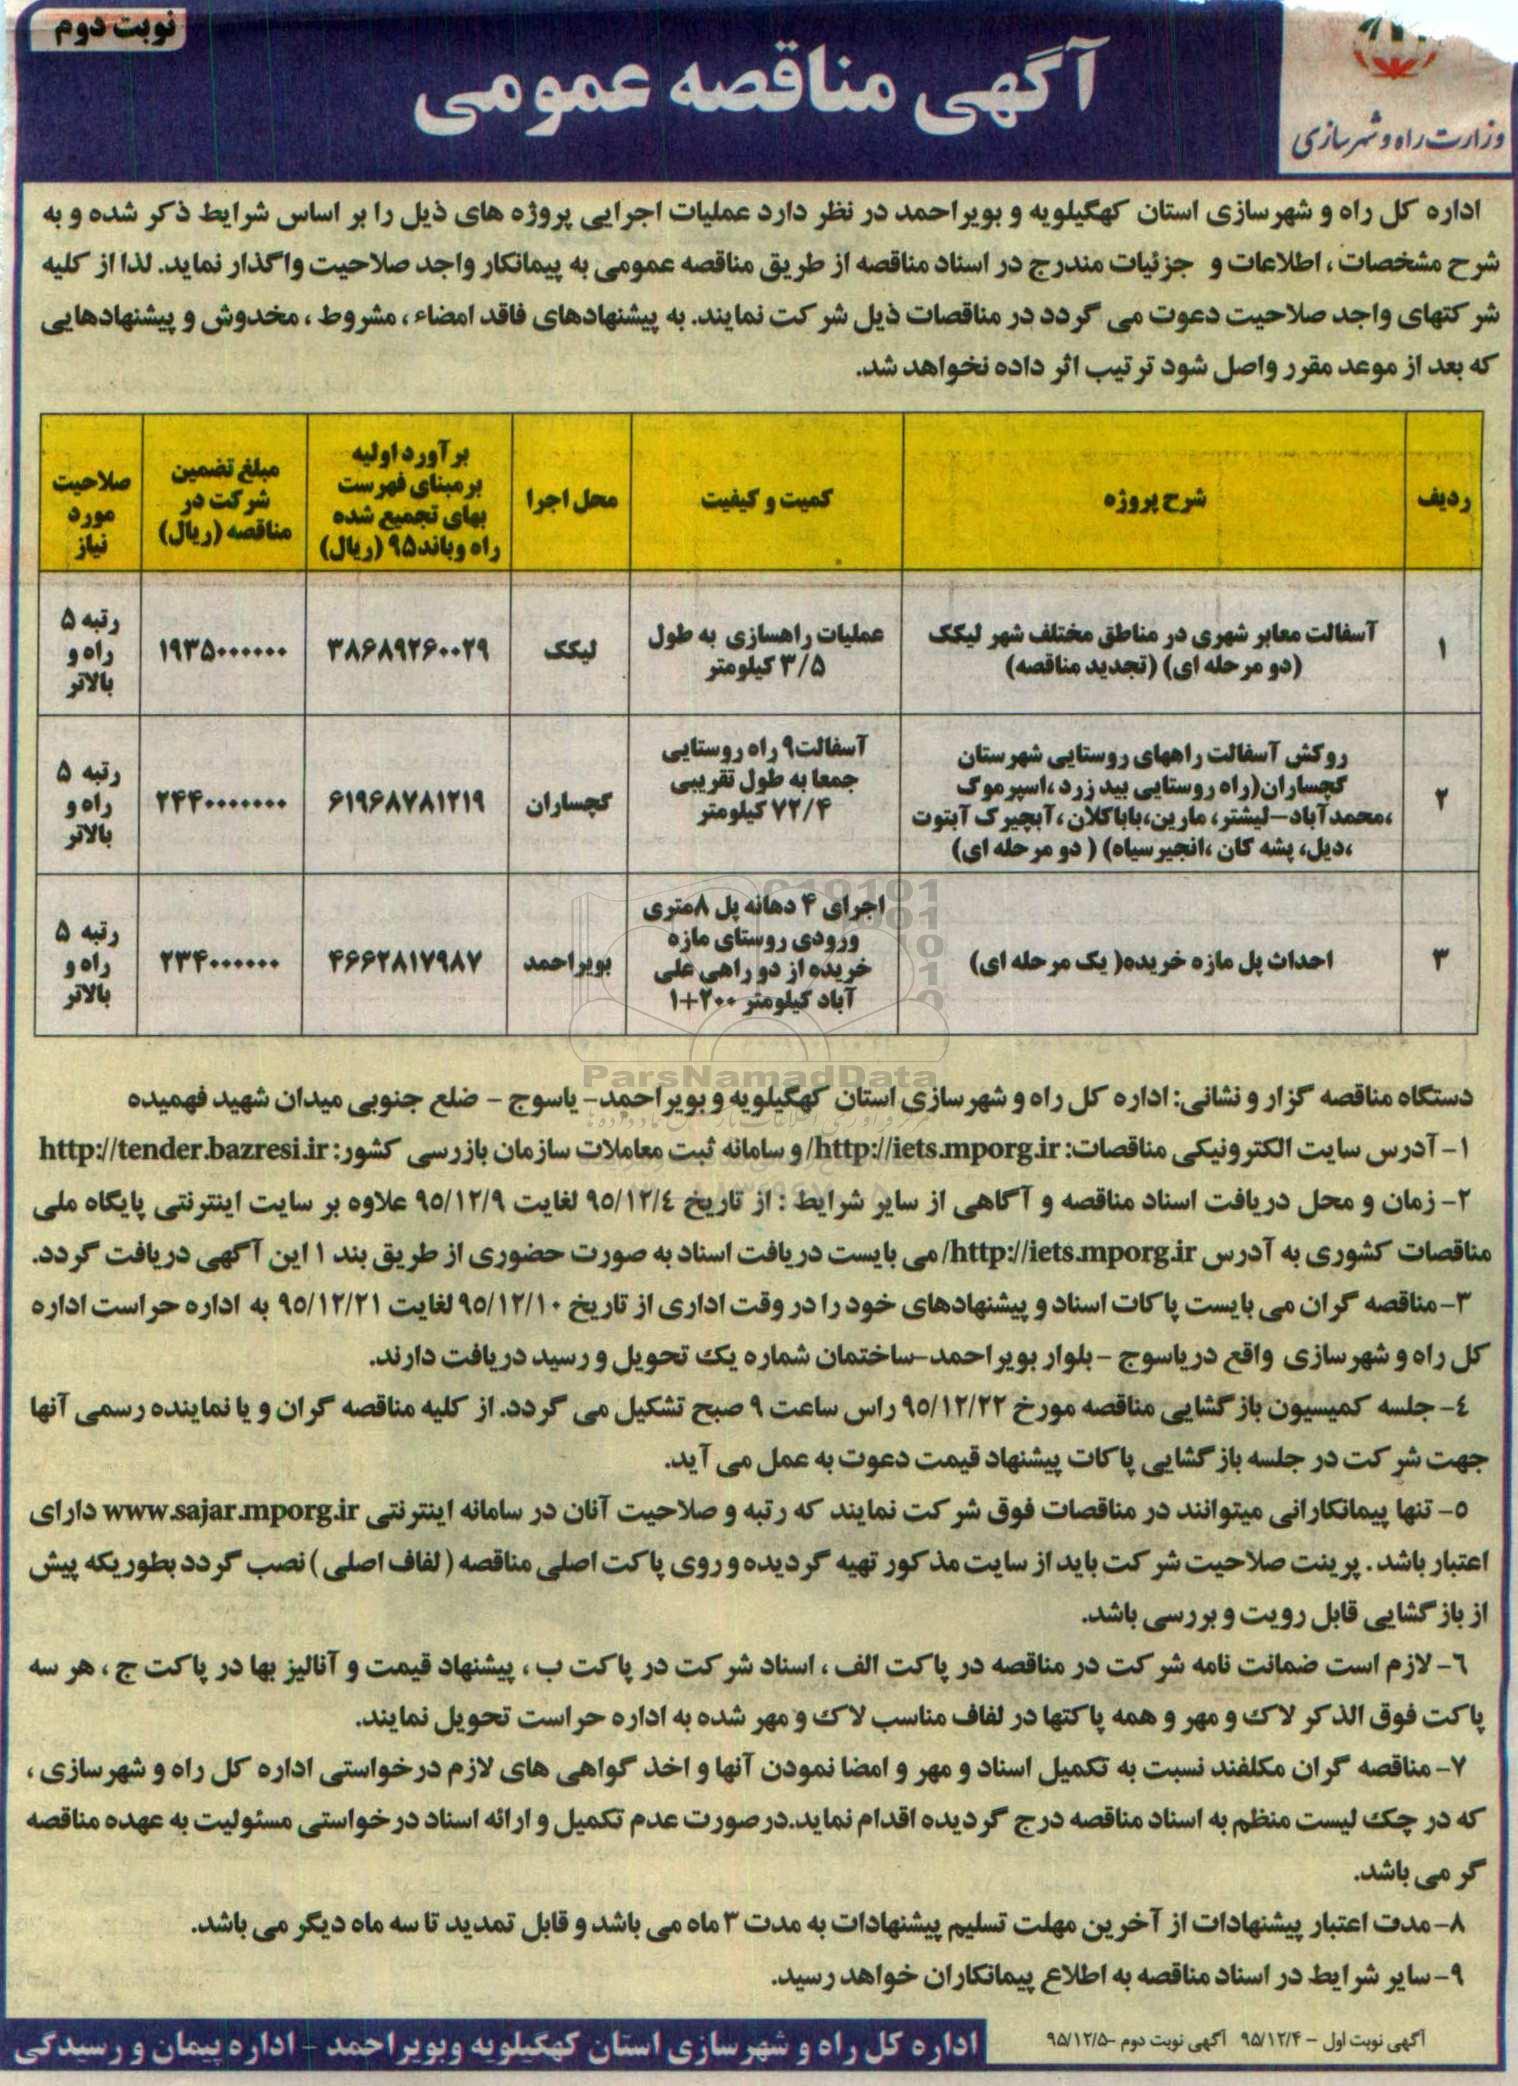 نوبت دوم
آگهی مناقصه عمومی
وزارت راه و شهرسازی
اداره کل راه و شهرسازی استان کهگیلویه و بویراحمد در نظر دارد عملیات اجرایی پروژه های ذیل را بر اساس شرایط ذکر شده و به
شرح مشخصات ، اطلاعات و جزئیات مندرج در اسناد مناقصه از طریق مناقصه عمومی به پیمانکار واجد صلاحیت واگذار نماید. لذا از کلیه
شرکتهای واجد صلاحیت دعوت می گردد در مناقصات ذیل شرکت نمایند. به پیشنهادهای فاقد امضاء ، مشروط ، مخدوش و پیشنهادهایی
که بعد از موعد مقرر واصل شود ترتیب اثر داده نخواهد شد.
ردیف
شرح پروژه
کمیت و کیفیت
محل اجرا
برآورد اولیه
برمبنای فهرست
بهای تجمیع شده
راه وباند۹۵ (ریال)
مبلغ تضمین
شرکت در
مناقصه (ریال)
صلاحیت
مورد
نیاز
۱
آسفالت معابر شهری در مناطق مختلف شهر لیکک
(دو مرحله ای) (تجدید مناقصه)
عملیات راهسازی به طول
۳/۵ کیلومتر
لیکک
۳۸۶۸۹۲۶۰۰۲۹
۱۹۳۵۰۰۰۰۰۰
رتبه ۵
راه و
بالاتر
۲
روکش آسفالت راههای روستایی شهرستان
گچساران(راه روستایی بید زرد ،اسپر موگ
،محمدآباد–لیشتر، مارین،باباکلان ،آبچیرک آبتوت
،دیل، پشه کان ،انجیرسیاه) ( دو مرحله ای)
آسفالت۹ راه روستایی
جمعا به طول تقریبی
۷۲/۴ کیلومتر
گچساران
۶۱۹۶۸۷۸۱۲۱۹
۲۴۴۰۰۰۰۰۰۰
رتبه ۵
راه و
بالاتر
۳
احداث پل مازه خریده( یک مرحله ای)
اجرای ۴ دهانه پل ۸متری
ورودی روستای مازه
خریده از دو راهی علی
آباد کیلومتر ۲۰۰+۱
بویراحمد
۴۶۶۲۸۱۷۹۸۷
۲۳۴۰۰۰۰۰۰
رتبه ۵
راه و
بالاتر
ParsNamadData
دستگاه مناقصه گزار و نشانی: اداره کل راه و شهرسازی استان کهگیلویه و بویراحمد- یاسوج - ضلع جنوبی میدان شهید فهمیده
۱- آدرس سایت الکترونیکی مناقصات: http://iets.mporg.ir/ و سامانه ثبت معاملات سازمان بازرسی کشور: http://tender.bazresi.ir
۲- زمان و محل دریافت اسناد مناقصه و آگاهی از سایر شرایط : از تاریخ ۹۵/۱۲/٤ لغایت ۹۵/۱۲/۹ علاوه بر سایت اینترنتی پایگاه ملی
مناقصات کشوری به آدرس http://iets.mporg.ir/ می بایست دریافت اسناد به صورت حضوری از طریق بند ۱ این آگهی دریافت گردد.
۳-مناقصه گران می بایست پاکات اسناد و پیشنهادهای خود را در وقت اداری از تاریخ ۹۵/۱۲/۱۰ لغایت ۹۵/۱۲/۲۱ به اداره حراست اداره
کل راه و شهرسازی واقع دریاسوج - بلوار بویراحمد-ساختمان شماره یک تحویل و رسید دریافت دارند.
٤- جلسه کمیسیون بازگشایی مناقصه مورخ ۹۵/۱۲/۲۲ راس ساعت ۹ صبح تشکیل می گردد. از کلیه مناقصه گران و یا نماینده رسمی آنها
جهت شرکت در جلسه بازگشایی پاکات پیشنهاد قیمت دعوت به عمل می آید.
۵- تنها پیمانکارانی میتوانند در مناقصات فوق شرکت نمایند که رتبه و صلاحیت آنان در سامانه اینترنتی www.sajar.mporg.ir دارای
اعتبار باشد . پرینت صلاحیت شرکت باید از سایت مذکور تهیه گردیده و روی پاکت اصلی مناقصه ( لفاف اصلی ) نصب گردد بطوریکه پیش
از بازگشایی قابل رویت و بررسی باشد.
٦- لازم است ضمانت نامه شرکت در مناقصه در پاکت الف ، اسناد شرکت در پاکت ب ، پیشنهاد قیمت و آنالیز بها در پاکت ج ، هر سه
پاکت فوق الذکر لاک و مهر و همه پاکتها در لفاف مناسب لاک و مهر شده به اداره حراست تحویل نمایند.
۷- مناقصه گران مکلفند نسبت به تکمیل اسناد و مهر و امضا نمودن آنها و اخذ گواهی های لازم درخواستی اداره کل راه و شهرسازی ،
که در چک لیست منظم به اسناد مناقصه درج گردیده اقدام نماید.درصورت عدم تکمیل و ارائه اسناد درخواستی مسئولیت به عهده مناقصه
گر می باشد.
۸- مدت اعتبار پیشنهادات از آخرین مهلت تسلیم پیشنهادات به مدت ۳ ماه می باشد و قابل تمدید تا سه ماه دیگر می باشد.
۹- سایر شرایط در اسناد مناقصه به اطلاع پیمانکاران خواهد رسید.
آگهی نوبت اول – ۹۵/۱۲/۴ آگهی نوبت دوم –۹۵/۱۲/۵
اداره کل راه و شهرسازی استان کهگیلویه وبویراحمد - اداره پیمان و رسیدگی